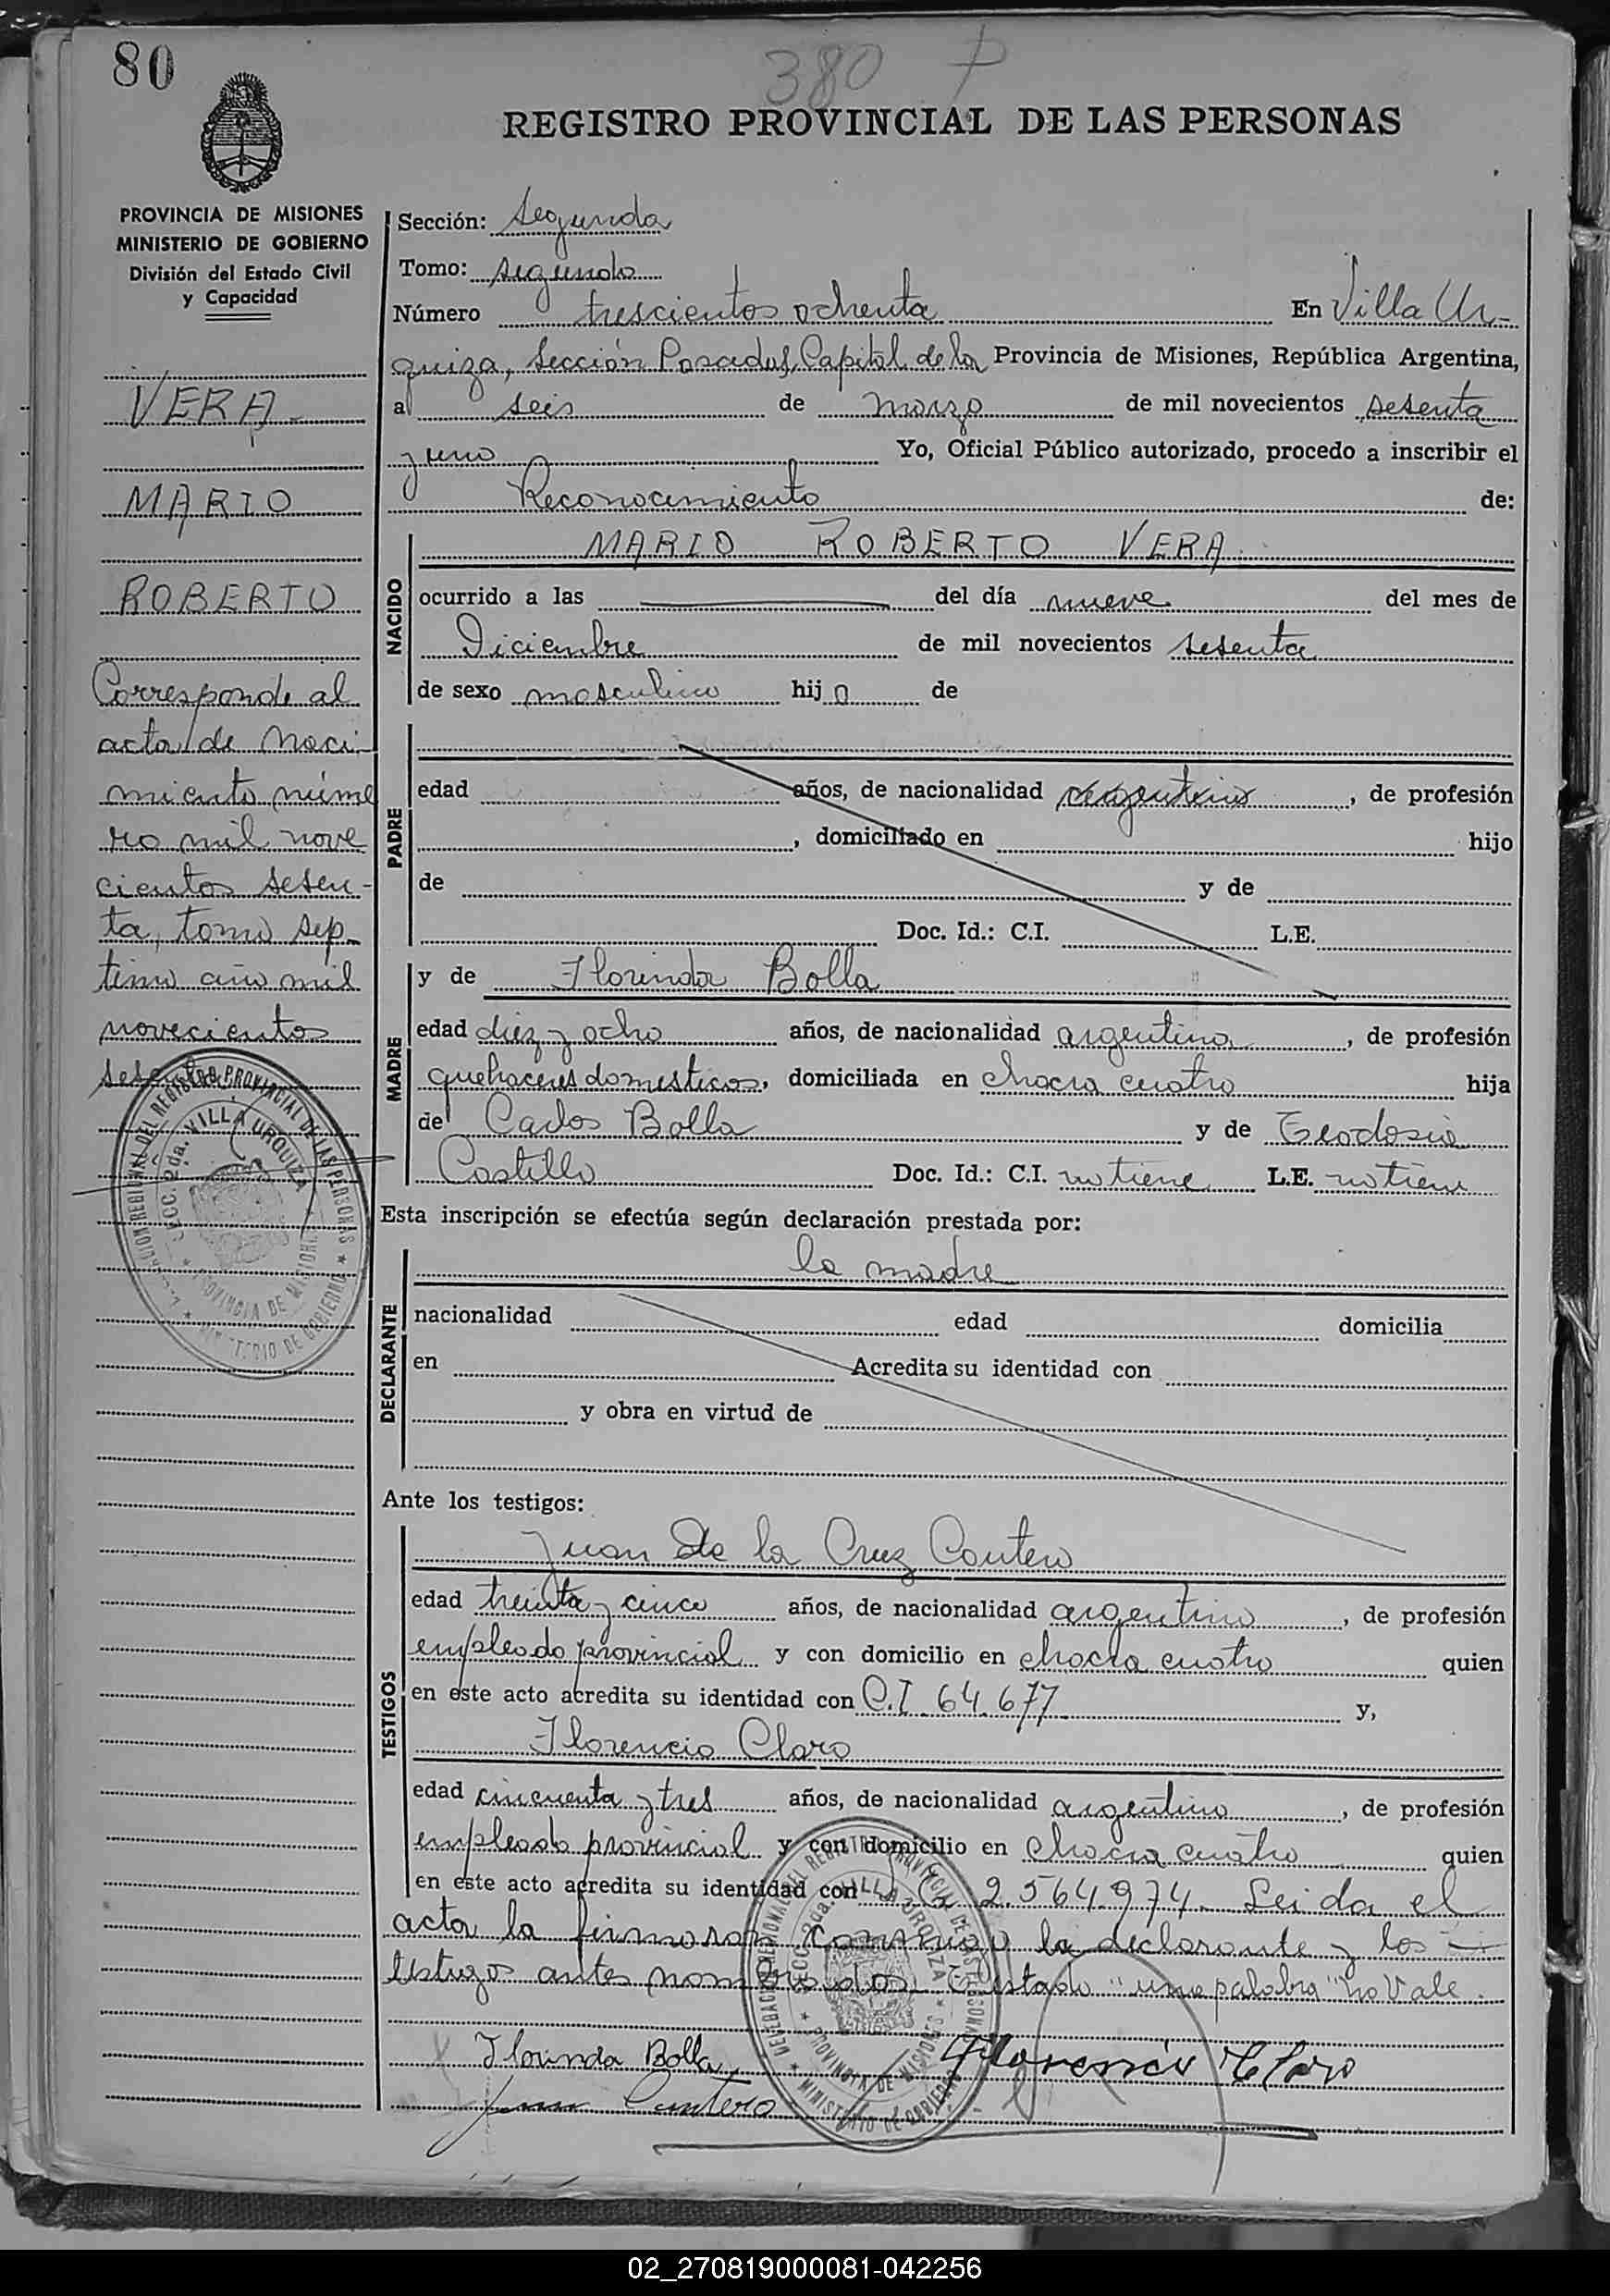 80
380
REGISTRO PROVINCIAL DE LAS PERSONAS
PROVINCIA DE MISIONES
MINISTERIO DE GOBIERNO
División del Estado Civil
y Capacidad
VERA
MARIO
ROBERTO
Corresponde al
acta de naci-
miento núme
ro mil nove
cientos sesen-
ta, tomo sep-
timo año mil
novecientos
sesenta
Sección: Segunda
Tomo: segundo
Número trescientos ochenta En Villa Ur-
quiza, Sección Posadas, Capital de la Provincia de Misiones, República Argentina,
a seis de marzo de mil novecientos sesenta
y uno Yo, Oficial Público autorizado, procedo a inscribir el
Reconocimiento de:
NACIDO
MARIO ROBERTO VERA
ocurrido a las del día nueve del mes de
Diciembre de mil novecientos sesenta
de sexo masculino hijo de
PADRE
edad años, de nacionalidad argentino, de profesión
, domiciliado en hijo
de y de
Doc. Id.: C.I. L.E.
MADRE
y de Florinda Bolla
edad diez y ocho años, de nacionalidad argentina, de profesión
quehaceres domesticos, domiciliada en chacra cuatro hija
de Carlos Bolla y de Teodosia
Castillo Doc. Id.: C.I. no tiene L.E. no tiene
Esta inscripción se efectúa según declaración prestada por:
DECLARANTE
la madre
nacionalidad edad domicilia
en Acredita su identidad con
y obra en virtud de
Ante los testigos:
TESTIGOS
Juan De la Cruz Cantero
edad treinta y cinco años, de nacionalidad argentino, de profesión
empleado provincial y con domicilio en chacra cuatro quien
en este acto acredita su identidad con C.I. 64.677 y,
Florencio Claro
edad cincuenta y tres años, de nacionalidad argentino, de profesión
empleado provincial y con domicilio en chacra cuatro quien
en este acto acredita su identidad con 2.564.974. Leida el
acta la firmaron conmigo la declarante y los
testigos antes nombrados. Testado "una palabra" no Vale.
Florinda Bolla Florencio Claro
Juan Cantero
DELEGACION REGIONAL DEL REGISTRO PROVINCIAL DE LAS PERSONAS
SECC. 2da. VILLA URQUIZA
PROVINCIA DE MISIONES
MINISTERIO DE GOBIERNO
02_270819000081-042256